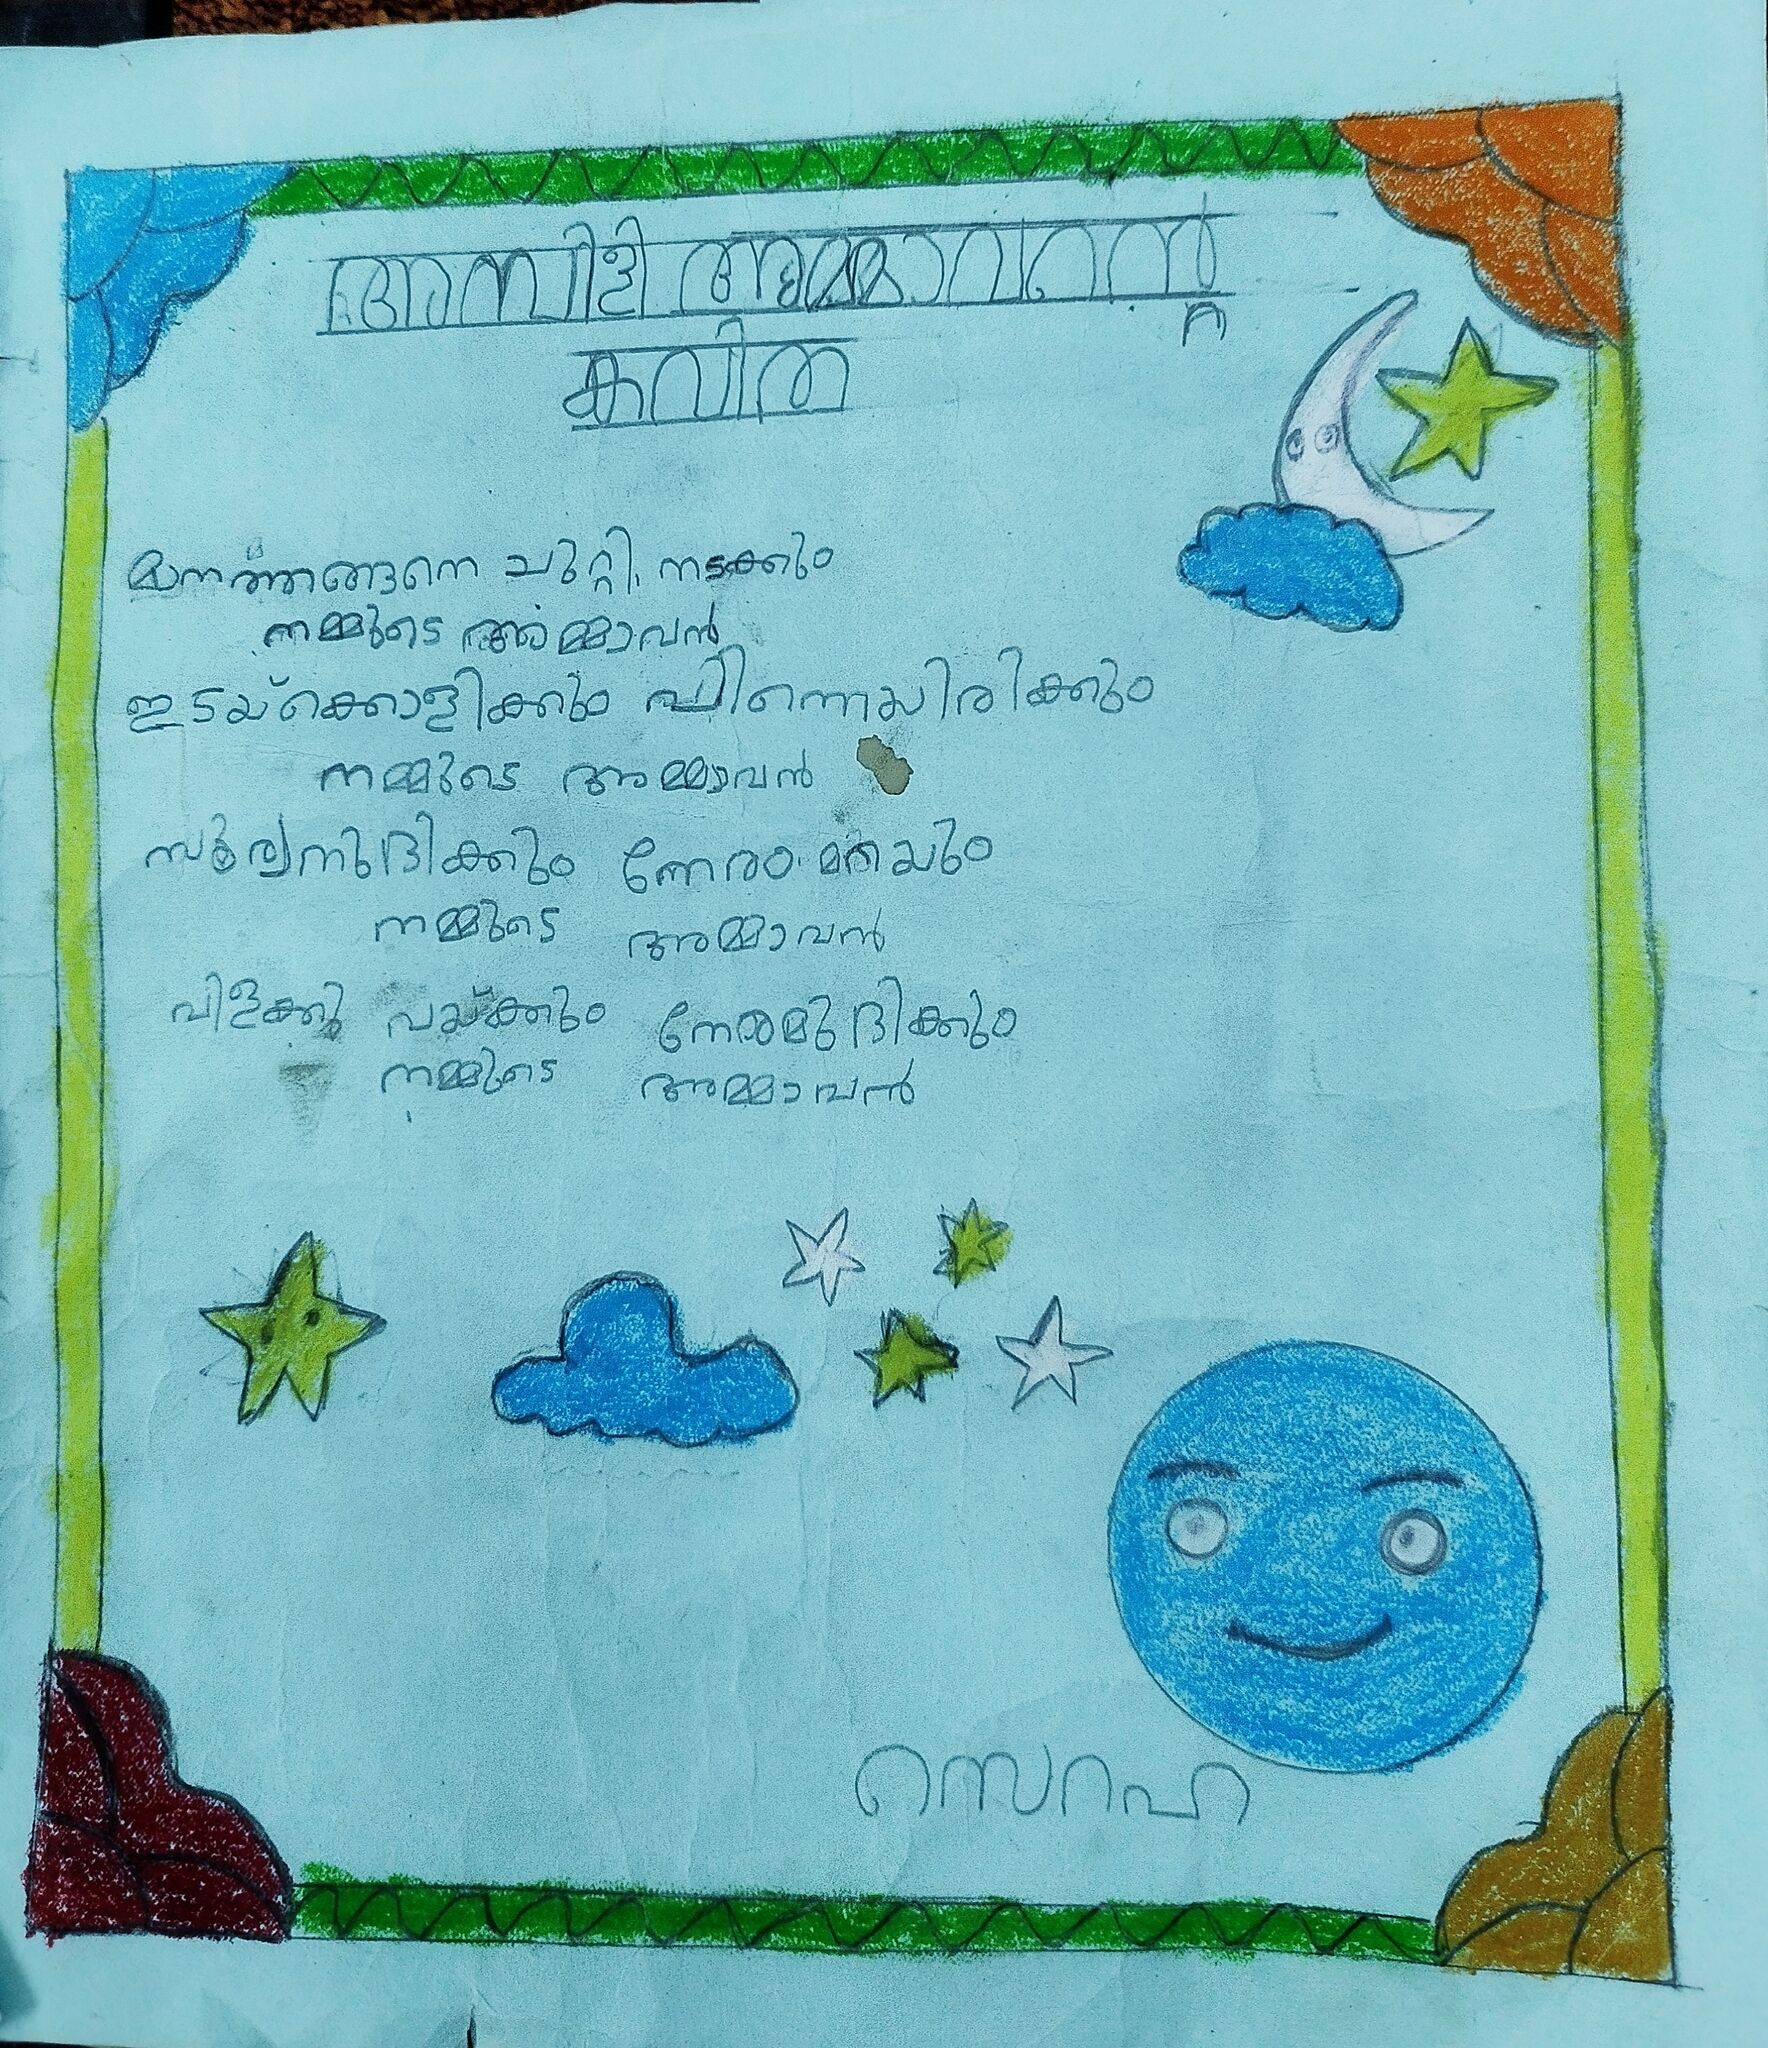 അമ്പിളി അമ്മാവന്റെ
കവിത
മാനത്തങ്ങനെ ചുറ്റി നടക്കും
നമ്മുടെ അമ്മാവൻ
ഇടയ്ക്കൊളിക്കും പിന്നെയിരിക്കും
നമ്മുടെ അമ്മാവൻ
സൂര്യനുദിക്കും നേരം മറയും
നമ്മുടെ അമ്മാവൻ
വിളക്കു വയ്ക്കും നേരമുദിക്കും
നമ്മുടെ അമ്മാവൻ
സെറഹ